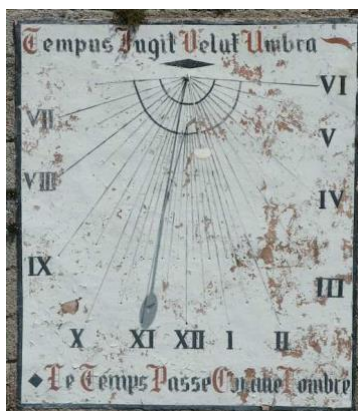 Tempus Fugit Velut Umbra
VI
VII
V
VIII
IV
IX
III
X XI XII I II
Le Temps Passe Comme L'ombre